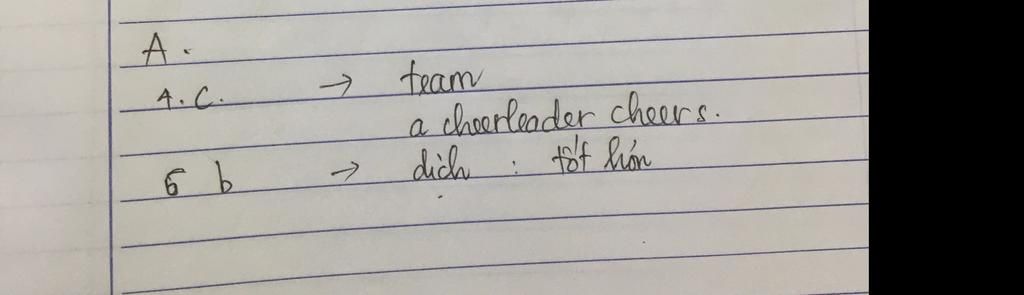 A.
4. C. → team
a cheerleader cheers.
5 b → dịch : tốt hơn